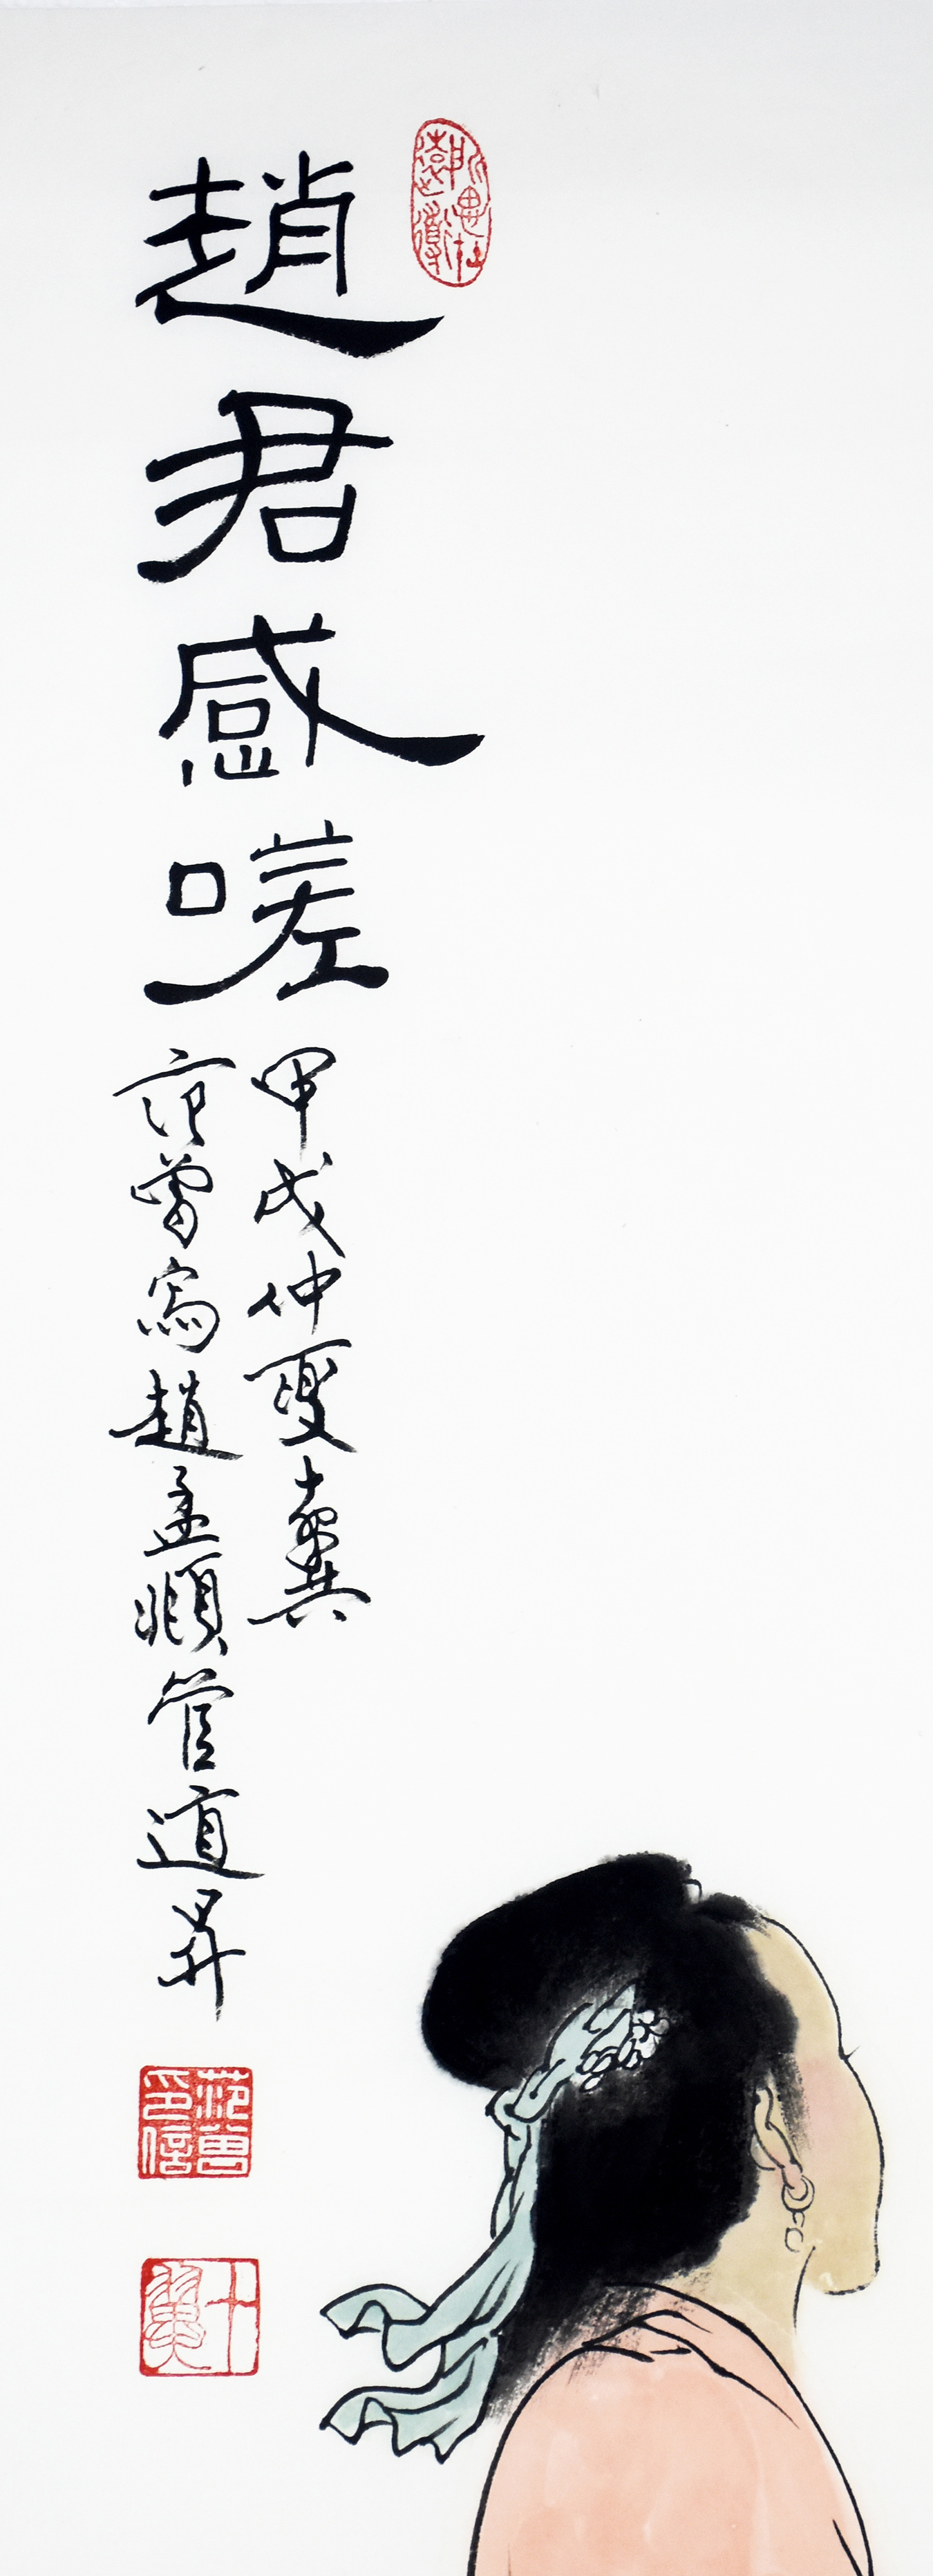 趙君感嗟
甲戌仲夏十翼
范曾寫趙孟頫管道昇
范曾印信
十翼